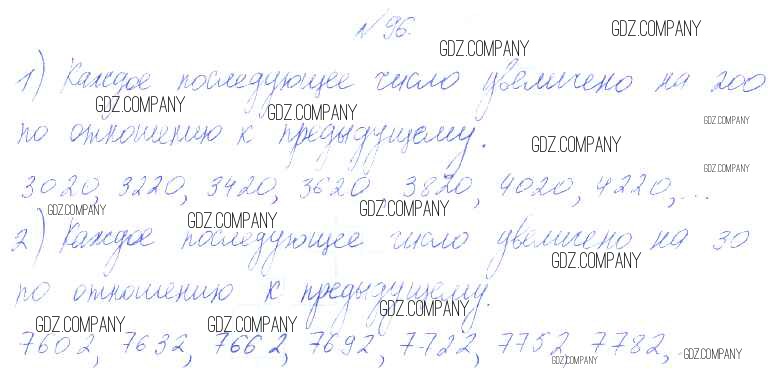 №96.
GDZ.COMPANY
GDZ.COMPANY
1) Каждое последующее число увеличено на 200
GDZ.COMPANY
GDZ.COMPANY
GDZ.COMPANY
по отношению к предыдущему.
GDZ.COMPANY
GDZ.COMPANY
3020, 3220, 3420, 3620, 3820, 4020, 4220, ...
GDZ.COMPANY
GDZ.COMPANY
GDZ.COMPANY
2) Каждое последующее число увеличено на 30
GDZ.COMPANY
по отношению к предыдущему.
GDZ.COMPANY
GDZ.COMPANY
GDZ.COMPANY
7602, 7632, 7662, 7692, 7722, 7752, 7782,
GDZ.COMPANY
GDZ.COMPANY